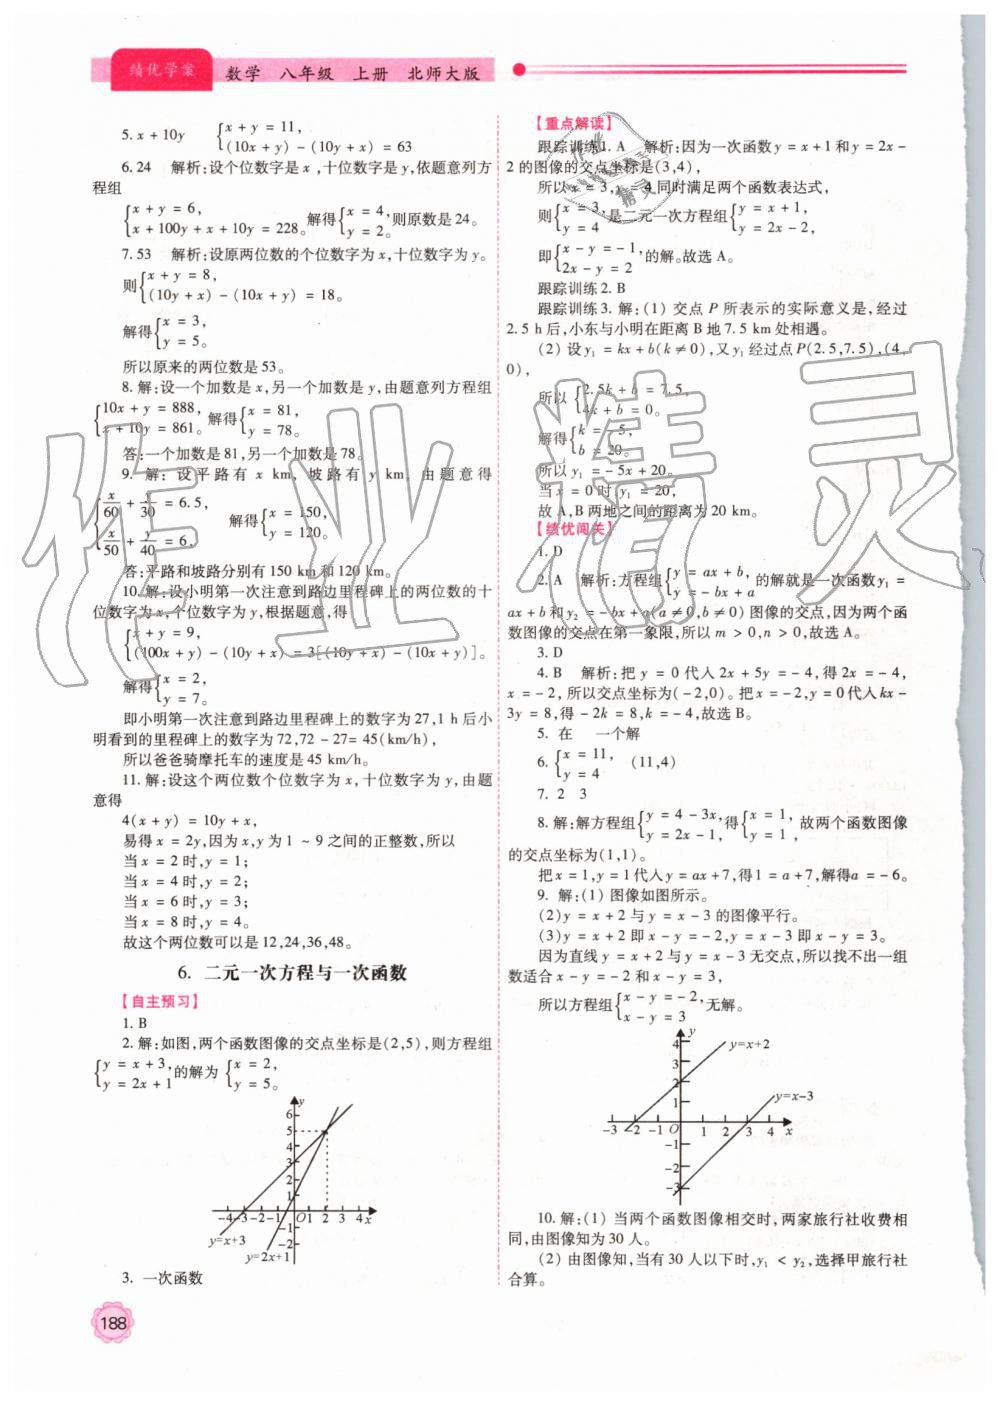 绩优学案 数学 八年级 上册 北师大版
5. x + 10y {x + y = 11, (10x + y) - (10y + x) = 63
6. 24 解析:设个位数字是 x,十位数字是 y,依题意列方
程组
{x + y = 6, x + 100y + x + 10y = 228。解得{x = 4, y = 2。则原数是 24。
7. 53 解析:设原两位数的个位数字为 x,十位数字为 y。
则{x + y = 8, (10y + x) - (10x + y) = 18。
解得{x = 3, y = 5。
所以原来的两位数是 53。
8. 解:设一个加数是 x,另一个加数是 y,由题意列方程组
{10x + y = 888, x + 10y = 861。解得{x = 81, y = 78。
答:一个加数是 81,另一个加数是 78。
9. 解:设平路有 x km,坡路有 y km,由题意得
{x/60 + y/30 = 6.5, x/50 + y/40 = 6, 解得{x = 150, y = 120。
答:平路和坡路分别有 150 km 和 120 km。
10. 解:设小明第一次注意到路边里程碑上的两位数的十
位数字为 x,个位数字为 y,根据题意,得
{x + y = 9, (100x + y) - (10y + x) = 3[(10y + x) - (10x + y)]。
解得{x = 2, y = 7。
即小明第一次注意到路边里程碑上的数字为 27,1 h 后小
明看到的里程碑上的数字为 72,72 - 27 = 45(km/h),
所以爸爸骑摩托车的速度是 45 km/h。
11. 解:设这个两位数个位数字为 x,十位数字为 y,由题
意得
4(x + y) = 10y + x,
易得 x = 2y,因为 x,y 为 1 ~ 9 之间的正整数,所以
当 x = 2 时,y = 1;
当 x = 4 时,y = 2;
当 x = 6 时,y = 3;
当 x = 8 时,y = 4。
故这个两位数可以是 12,24,36,48。
6. 二元一次方程与一次函数
【自主预习】
1. B
2. 解:如图,两个函数图像的交点坐标是(2,5),则方程组
{y = x + 3, y = 2x + 1 的解为 {x = 2, y = 5。
y
6
5
4
3
2
1
-4 -3 -2 -1 O 1 2 3 4 x
-1
-2
y=x+3
y=2x+1
3. 一次函数
188
【重点解读】
跟踪训练 1. A 解析:因为一次函数 y = x + 1 和 y = 2x -
2 的图像的交点坐标是(3,4),
所以 x = 3,y = 4 同时满足两个函数表达式,
则{x = 3, y = 4 是二元一次方程组{y = x + 1, y = 2x - 2,
即{x - y = -1, 2x - y = 2 的解。故选 A。
跟踪训练 2. B
跟踪训练 3. 解:(1) 交点 P 所表示的实际意义是,经过
2.5 h 后,小东与小明在距离 B 地 7.5 km 处相遇。
(2) 设 y₁ = kx + b(k ≠ 0),又 y₁ 经过点 P(2.5,7.5),(4,
0),
所以 {2.5k + b = 7.5, 4k + b = 0。
解得{k = -5, b = 20。
所以 y₁ = -5x + 20。
当 x = 0 时,y₁ = 20,
故 A,B 两地之间的距离为 20 km。
【绩优闯关】
1. D
2. A 解析:方程组{y = ax + b, y = -bx + a 的解就是一次函数 y₁ =
ax + b 和 y₂ = -bx + a(a ≠ 0,b ≠ 0) 图像的交点,因为两个函
数图像的交点在第一象限,所以 m > 0,n > 0,故选 A。
3. D
4. B 解析:把 y = 0 代入 2x + 5y = -4,得 2x = -4,
x = -2,所以交点坐标为(-2,0)。把 x = -2,y = 0 代入 kx -
3y = 8,得 -2k = 8,k = -4,故选 B。
5. 在 一个解
6. {x = 11, y = 4 (11,4)
7. 2 3
8. 解:解方程组{y = 4 - 3x, y = 2x - 1, 得{x = 1, y = 1, 故两个函数图像
的交点坐标为(1,1)。
把 x = 1,y = 1 代入 y = ax + 7,得 1 = a + 7,解得 a = -6。
9. 解:(1) 图像如图所示。
(2) y = x + 2 与 y = x - 3 的图像平行。
(3) y = x + 2 即 x - y = -2,y = x - 3 即 x - y = 3。
因为直线 y = x + 2 与 y = x - 3 无交点,所以找不出一组
数适合 x - y = -2 和 x - y = 3,
所以方程组{x - y = -2, x - y = 3 无解。
y
4
3
2
1
y=x+2
y=x-3
-3 -2 -1 O 1 2 3 4 x
-1
-2
-3
10. 解:(1) 当两个函数图像相交时,两家旅行社收费相
同,由图像知为 30 人。
(2) 由图像知,当有 30 人以下时,y₁ < y₂,选择甲旅行社
合算。
作业精灵